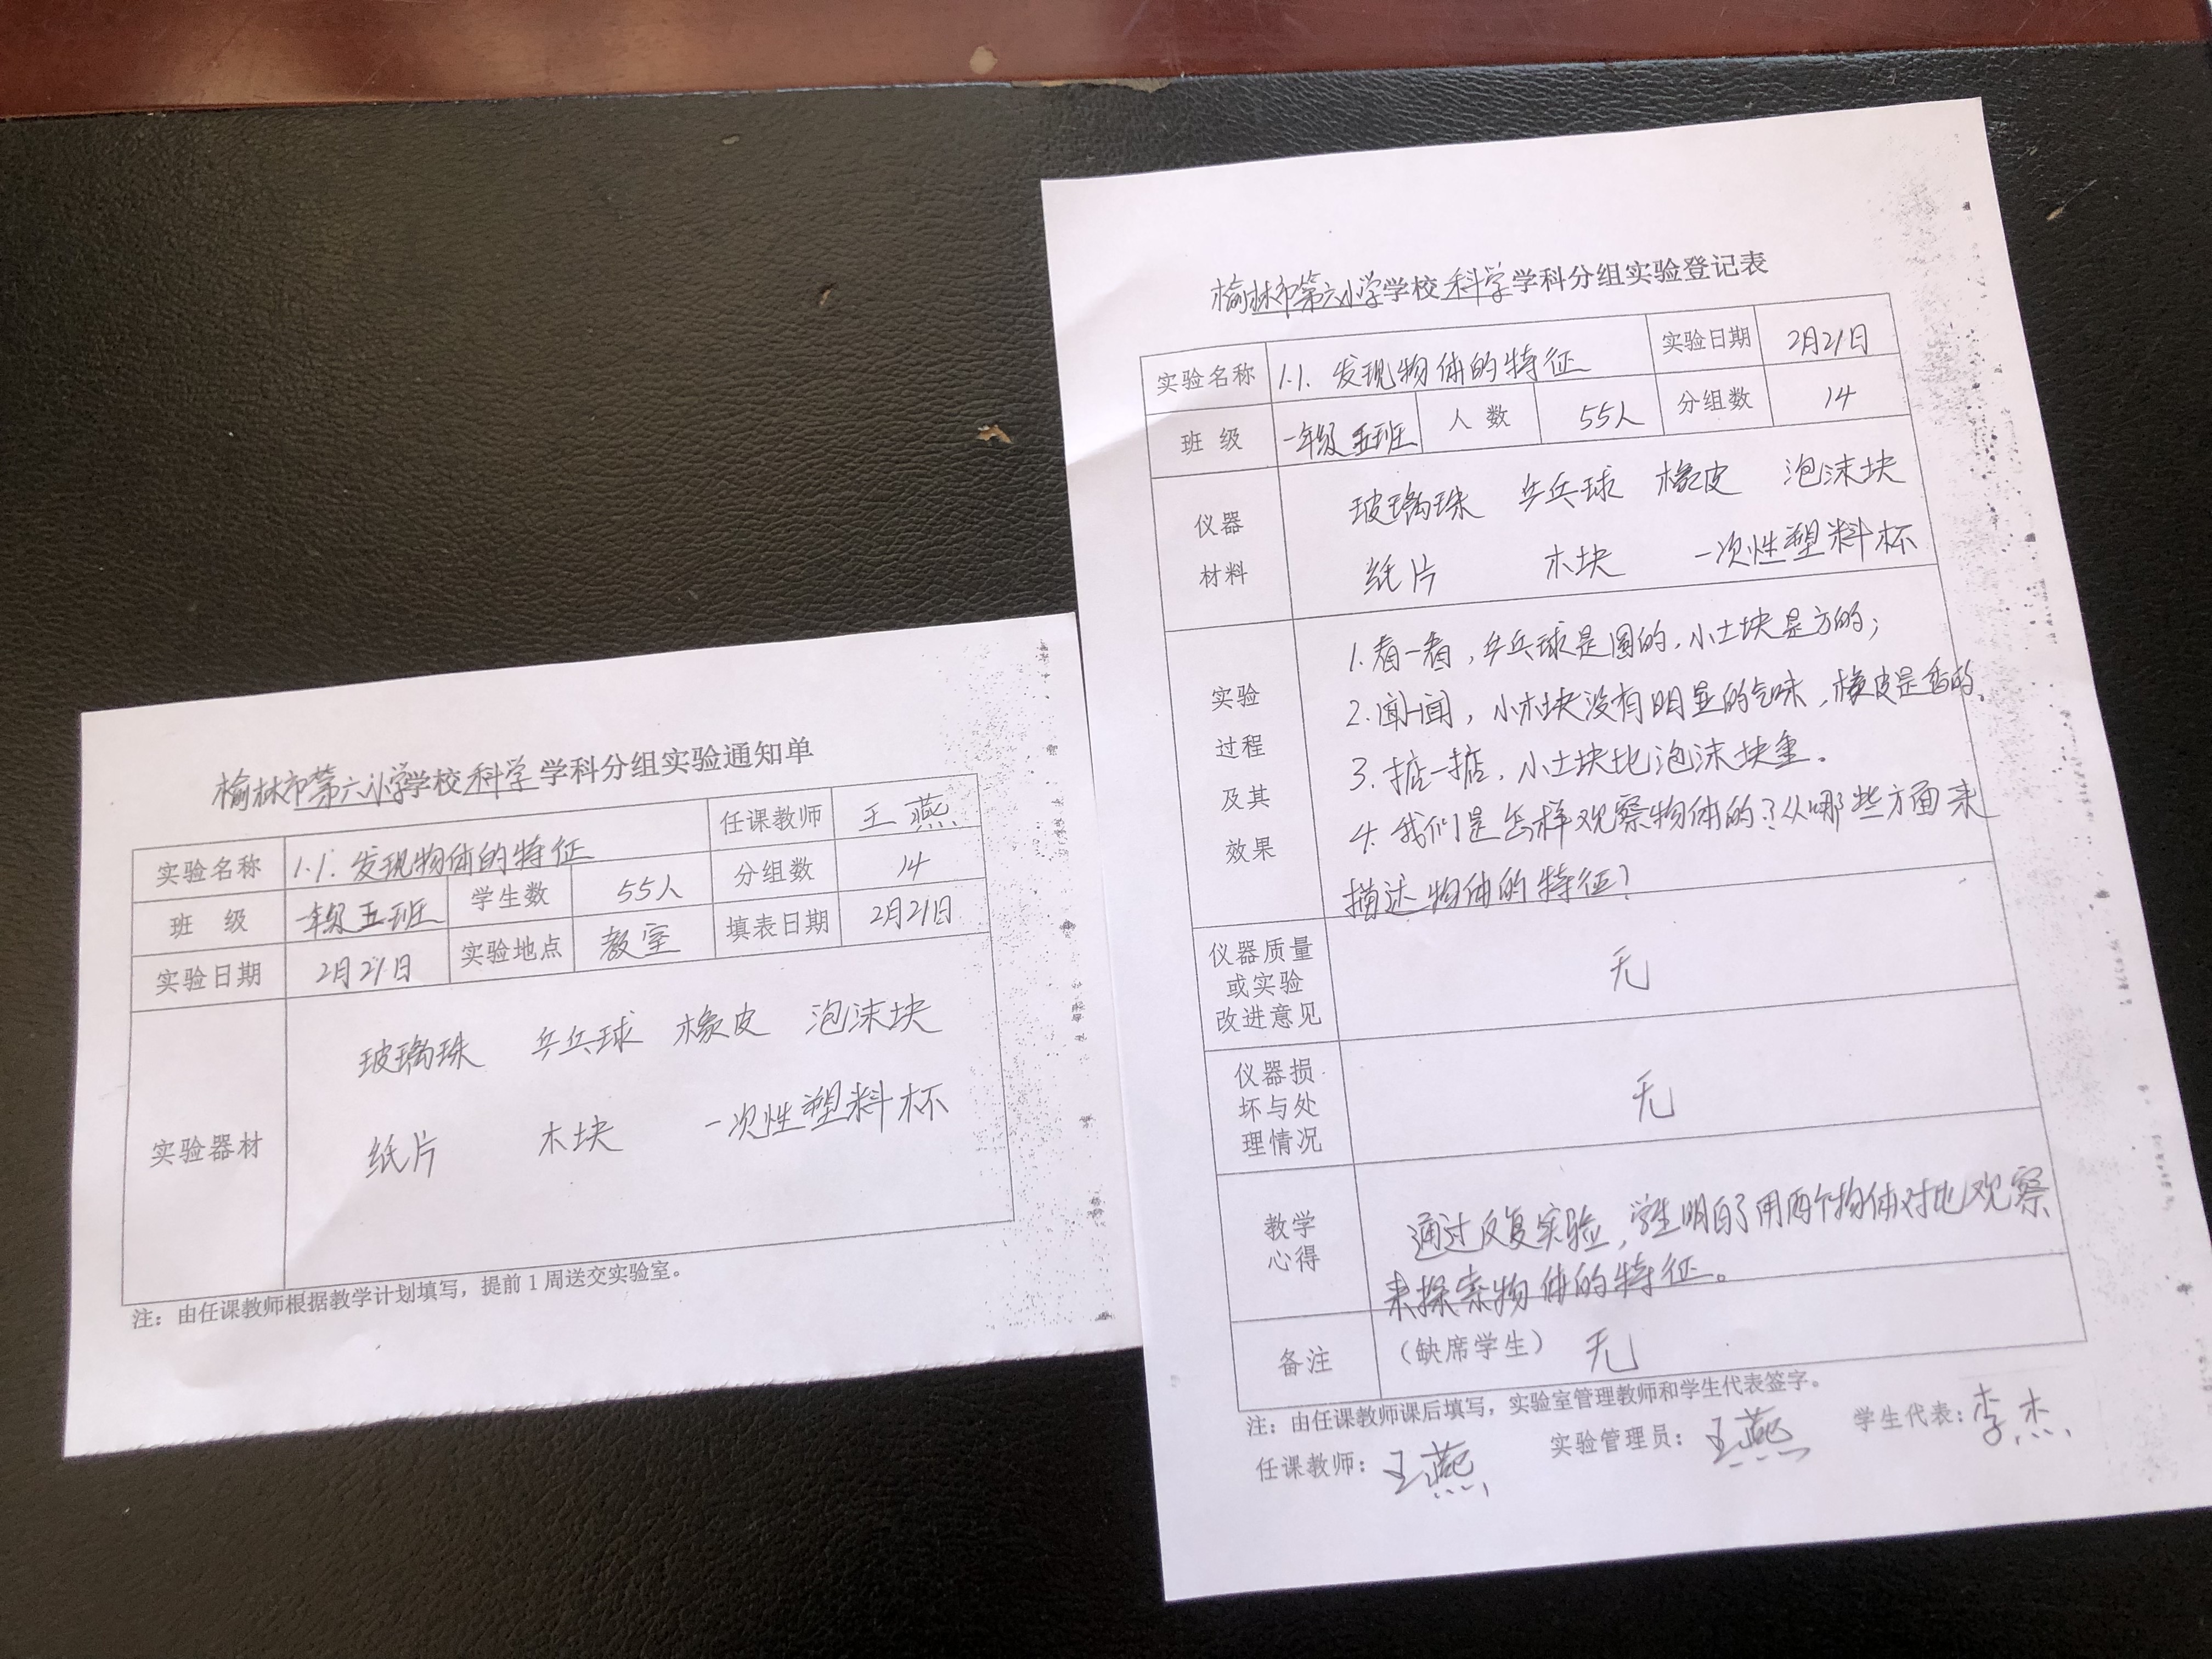 榆林市第六小学学校科学学科分组实验通知单
实验名称 1.1.发现物体的特征 任课教师 王燕
班 级 一年级五班 学生数 55人 分组数 14
实验日期 2月21日 实验地点 教室 填表日期 2月21日
实验器材
玻璃珠 乒乓球 橡皮 泡沫块
纸片 木块 一次性塑料杯
注：由任课教师根据教学计划填写，提前1周送交实验室。
榆林市第六小学学校科学学科分组实验登记表
实验名称 1.1.发现物体的特征 实验日期 2月21日
班 级 一年级五班 人 数 55人 分组数 14
仪器
材料
玻璃珠 乒乓球 橡皮 泡沫块
纸片 木块 一次性塑料杯
实验
过程
及其
效果
1.看一看，乒乓球是圆的，小土块是方的；
2.闻一闻，小木块没有明显的气味，橡皮是香的。
3.掂一掂，小土块比泡沫块重。
4.我们是怎样观察物体的？从哪些方面来
描述物体的特征？
仪器质量
或实验
改进意见
无
仪器损
坏与处
理情况
无
教学
心得
通过反复实验，学生明白了用两个物体对比观察
来探索物体的特征。
备注 （缺席学生） 无
注：由任课教师课后填写，实验室管理教师和学生代表签字。
任课教师：王燕 实验管理员：王燕 学生代表：李杰